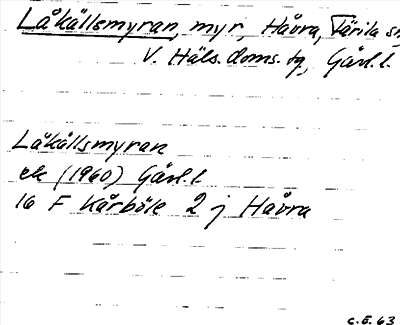 Låkällsmyran, myr, Håvra, Färila sn
V. Häls. doms. tg, Gävl. l.
Låkällsmyran
ek (1960) Gävl. l.
16 F Kårböle 2 j Håvra
C.E. 63